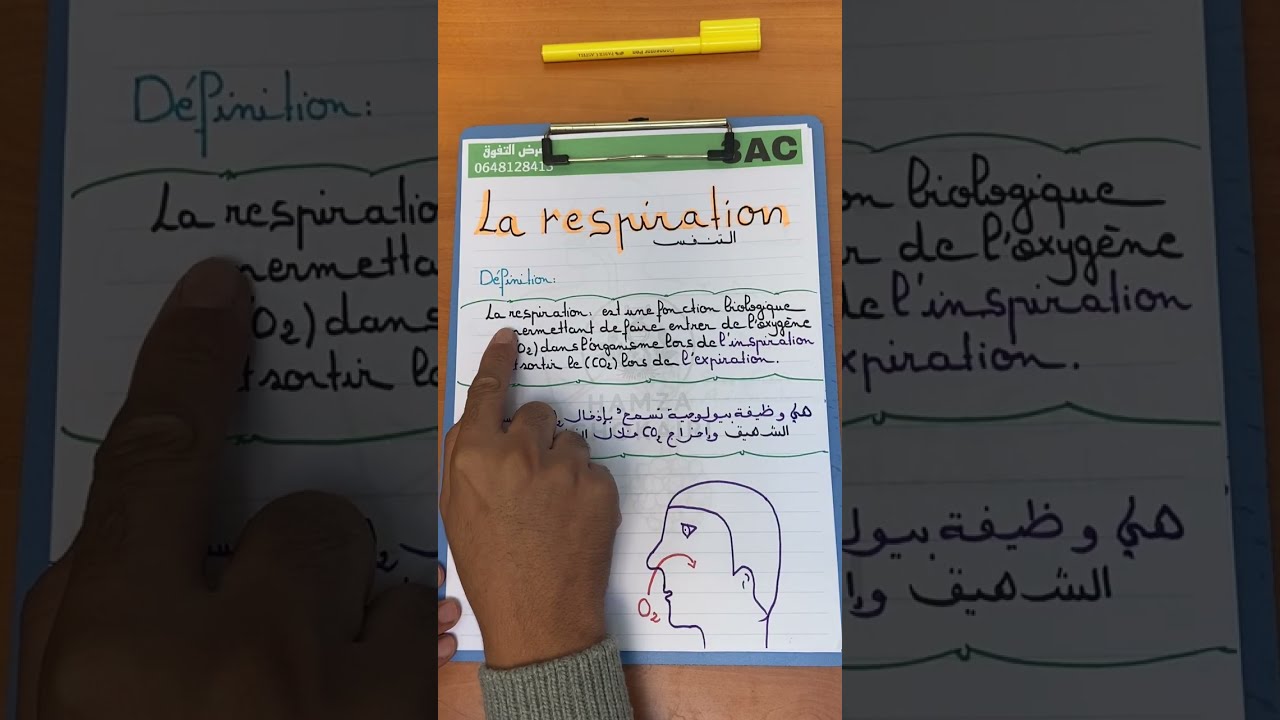 عرض التفوق
0648128413
3AC
La respiration
التنفس
Définition:
La respiration est une fonction biologique
permettant de faire entrer de l'oxygène
O₂) dans l'organisme lors de l'inspiration
sortir le (CO₂) lors de l'expiration.
هي وظيفة بيولوجية تسمح بإدخال
الشهيق وإخراج CO₂ خلال
HAMZA
O₂